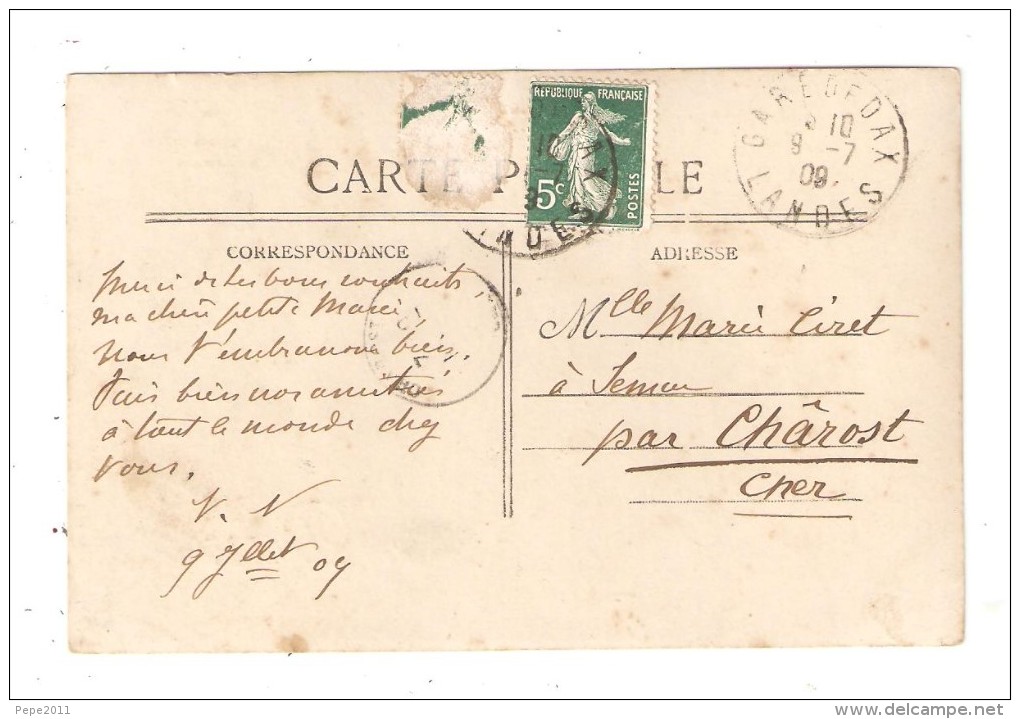 CARTE P LE
RÉPUBLIQUE FRANÇAISE
5c
POSTES
10
-7
NDES
GARE DE DAX
10
9 -7
09
LANDES
CORRESPONDANCE
Merci de tes bons souhaits,
ma chère petite Marie
Nous t'embrassons bien.
Fais bien nos amitiés
à tout le monde chez
vous.
V. V
9 Jllet 09
ADRESSE
Mlle Marie Ciret
à
par Chârost
Cher
Pepe2011
delcampe.net